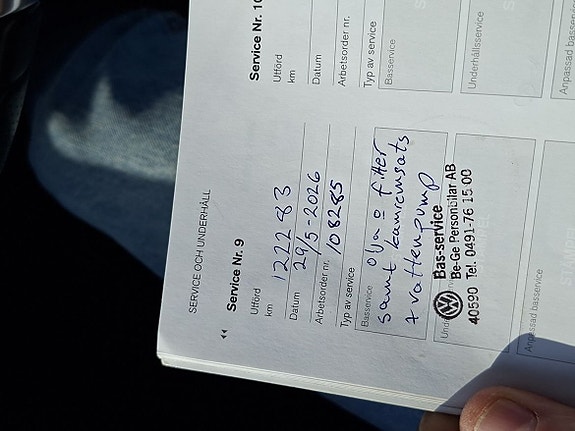 SERVICE OCH UNDERHÅLL
Service Nr. 9
Utförd
km 122283
Datum 29/5-2026
Arbetsorder nr. 108285
Typ av service
Basservice olja o filter
samt kamremsats
+ vattenpump
Bas-service
Be-Ge Personbilar AB
40590 Tel. 0491-76 15 00
Anpassad basservice
Service Nr. 10
Utförd
km
Datum
Arbetsorder nr.
Typ av service
Basservice
Underhållsservice
Anpassad basservice